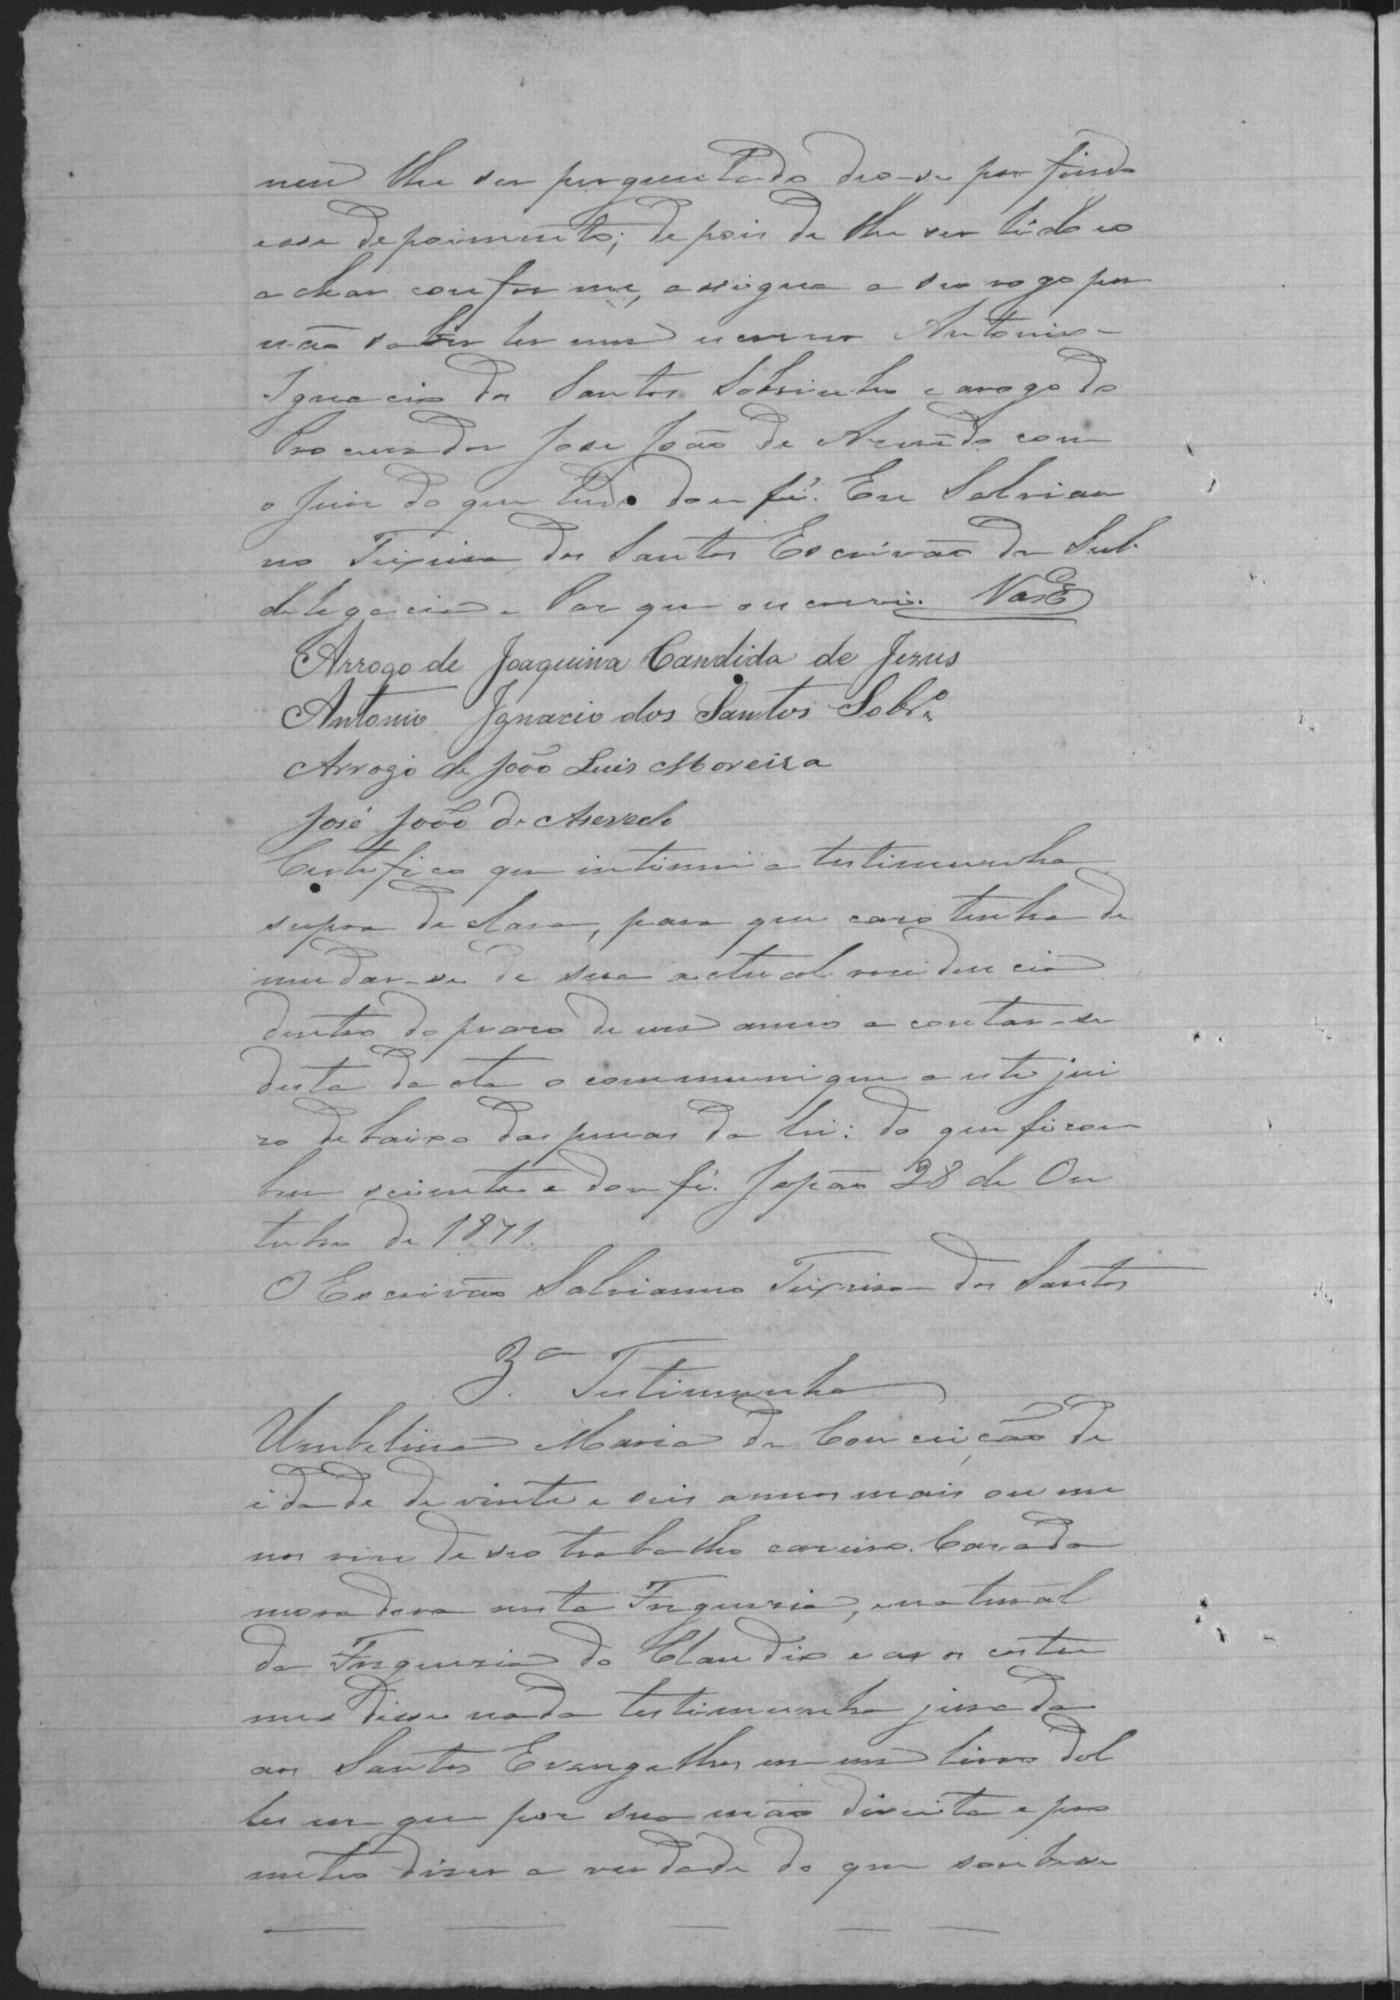 nem lhe ser perguntado deo-se por findo
esse depoimento; depois de lhe ser lido eo
achar conforme, assigna a seo rogo por
não saber ler nem escrever Antonio
Ignacio dos Santos Sobrinho e arogo do
Procurador Jose João de Azevêdo com
o Juiz do que tudo dou fé. Eu Salvian
no Teixeira dos Santos Escrivão da Sub
delegacia e Paz que escrevi.
Arrogo de Joaquina Candida de Jezus
Antonio Ignacio dos Santos Sobrº
Arrogo de João Luis Moreira
José João de Asevedo
Certefico que intimei a testimunha
supra declara, para que caso tenha de
mudar-se de sua actual residencia
dentro do prazo de um anno a contar-se
desta dacta o communique a este jui
zo debaixo das penas da lei: do que ficou
bem sciente e dou fé. Japão 28 de Ou
tubro de 1871.
O Escrivão Salvianno Teixeira dos Santos
3ª Testimunha
Umbelina Maria da Conceição de
idade de vinte e seis annos mais ou me
nos vive de seo trabalho caseiro. Casada
moradora nesta Freguezia, e natural
da Freguezia do Claudio e aos costu
mes disse nada testimunha jurada
aos Santos Evangelhos em um livro del
les em que poz sua mão direita e pro
meteo dizer a verdade do que soubesse